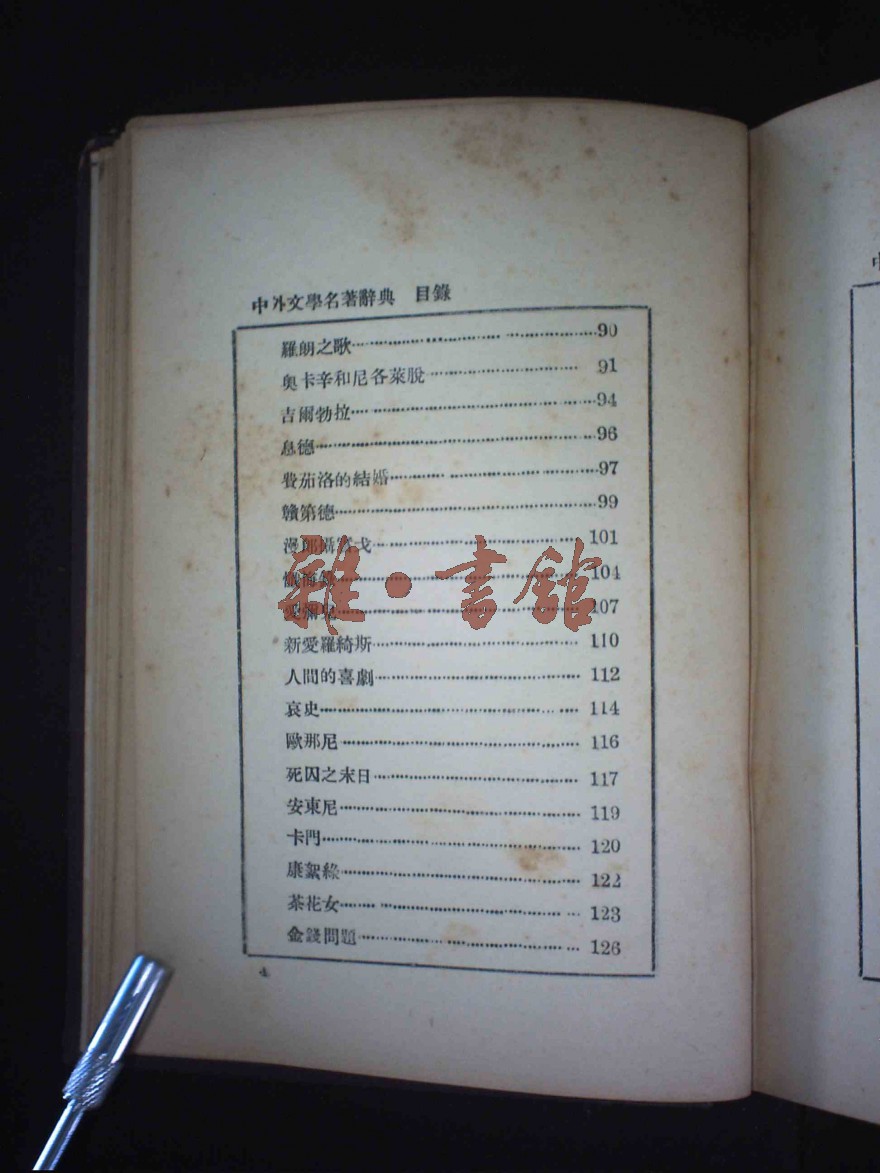 中外文學名著辭典 目錄
羅朗之歌 90
奧卡辛和尼各萊脫 91
吉爾勃拉 94
息德 96
費茄洛的結婚 97
贛第德 99
漫郎攝實戈 101
懺悔錄 104
愛彌兒 107
新愛羅綺斯 110
人間的喜劇 112
哀史 114
歐那尼 116
死囚之末日 117
安東尼 119
卡門 120
康絮綠 122
茶花女 123
金錢問題 126
4
雜·書館